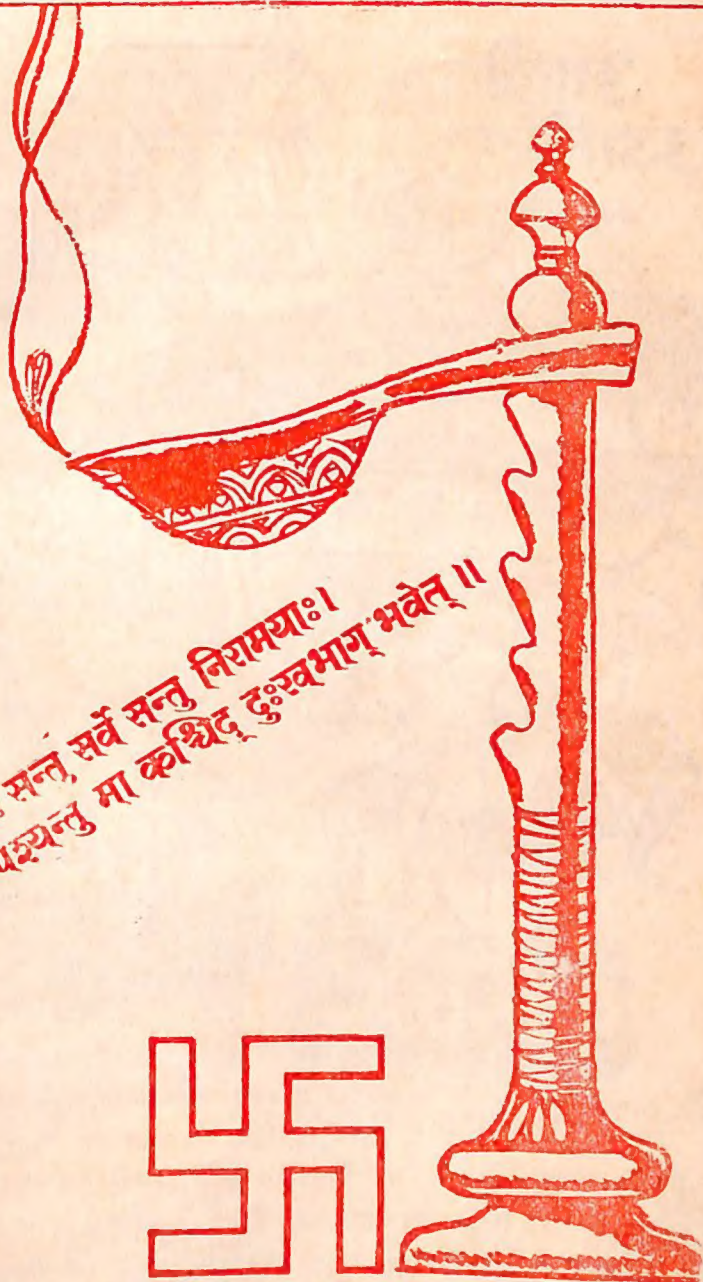 सन्तु सर्वे सन्तु निरामयाः।
पश्यन्तु मा कश्चिद् दुःखभाग् भवेत्॥